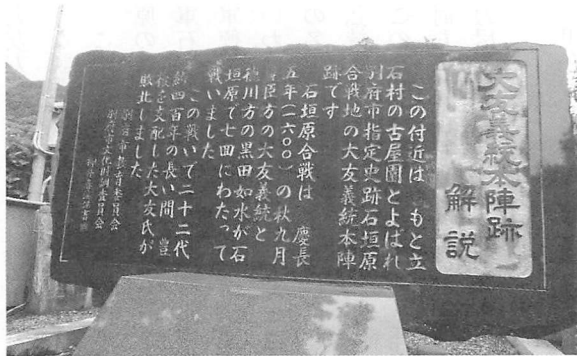 大友義統本陣跡
解説
この付近は もと立
石村の古屋園とよばれ
別府市指定史跡石垣原
合戦地の大友義統本陣
跡です
石垣原合戦は 慶長
五年(一六〇〇)の秋九月
豊臣方の大友義統と
徳川方の黒田如水が石
垣原で七回にわたって
戦いました
この戦いで二十二代
約四百年の長い間 豊
後を支配した大友氏が
敗北しました
別府市教育委員会
別府市文化財調査員会